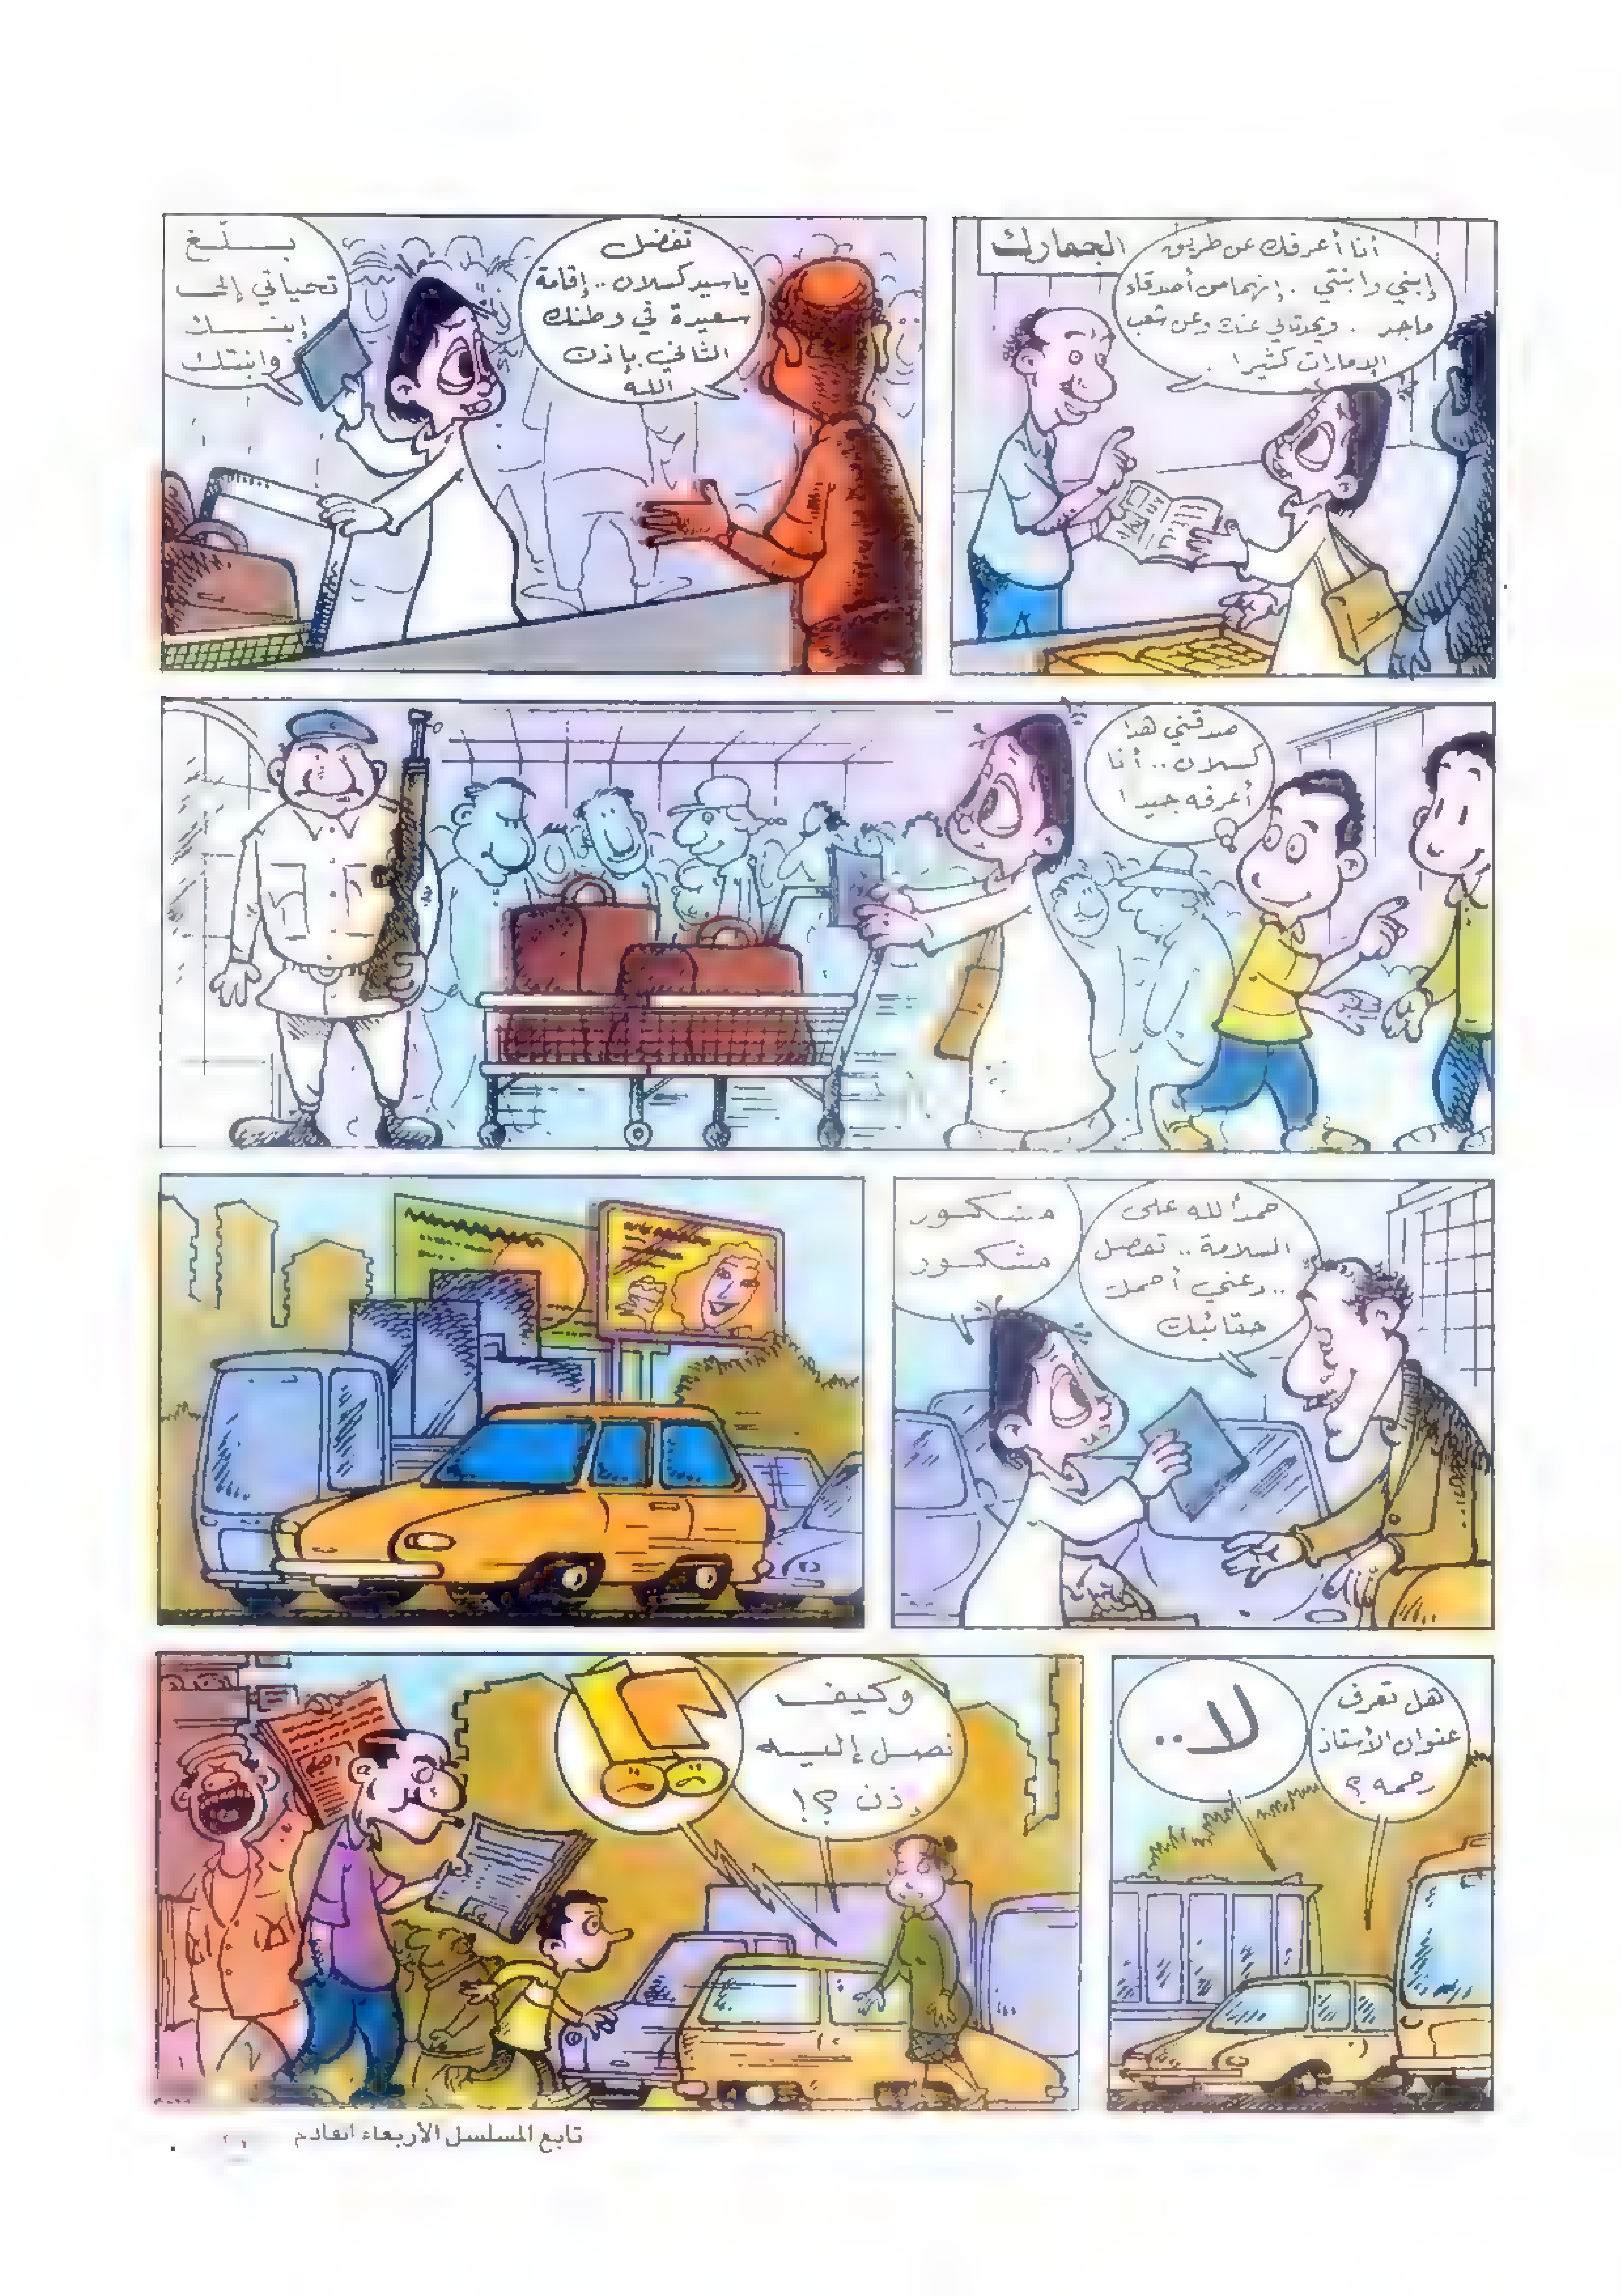 الجمارك
أنا أعرفك عن طريق
إبني وابنتي .. إنهما من أصدقاء
ماجد .. ويحدثاني عنك وعن شعب
الإمارات كثيرا .
تفضل
ياسيد كسلان .. إقامة
سعيدة في وطنك
الثاني بإذن
الله
بلّغ
تحياتي إلى
إبنك
وابنتك
صدقني هذا
كسلان .. أنا
أعرفه جيدا
حمداً لله على
السلامة .. تفضل
.. دعني أحمل
حقائبك
مشكور
مشكور
هل تعرف
عنوان الأستاذ
رحمه ؟
لا ..
وكيف
نصل إليه
إذن ؟!
تابع المسلسل الأربعاء القادم